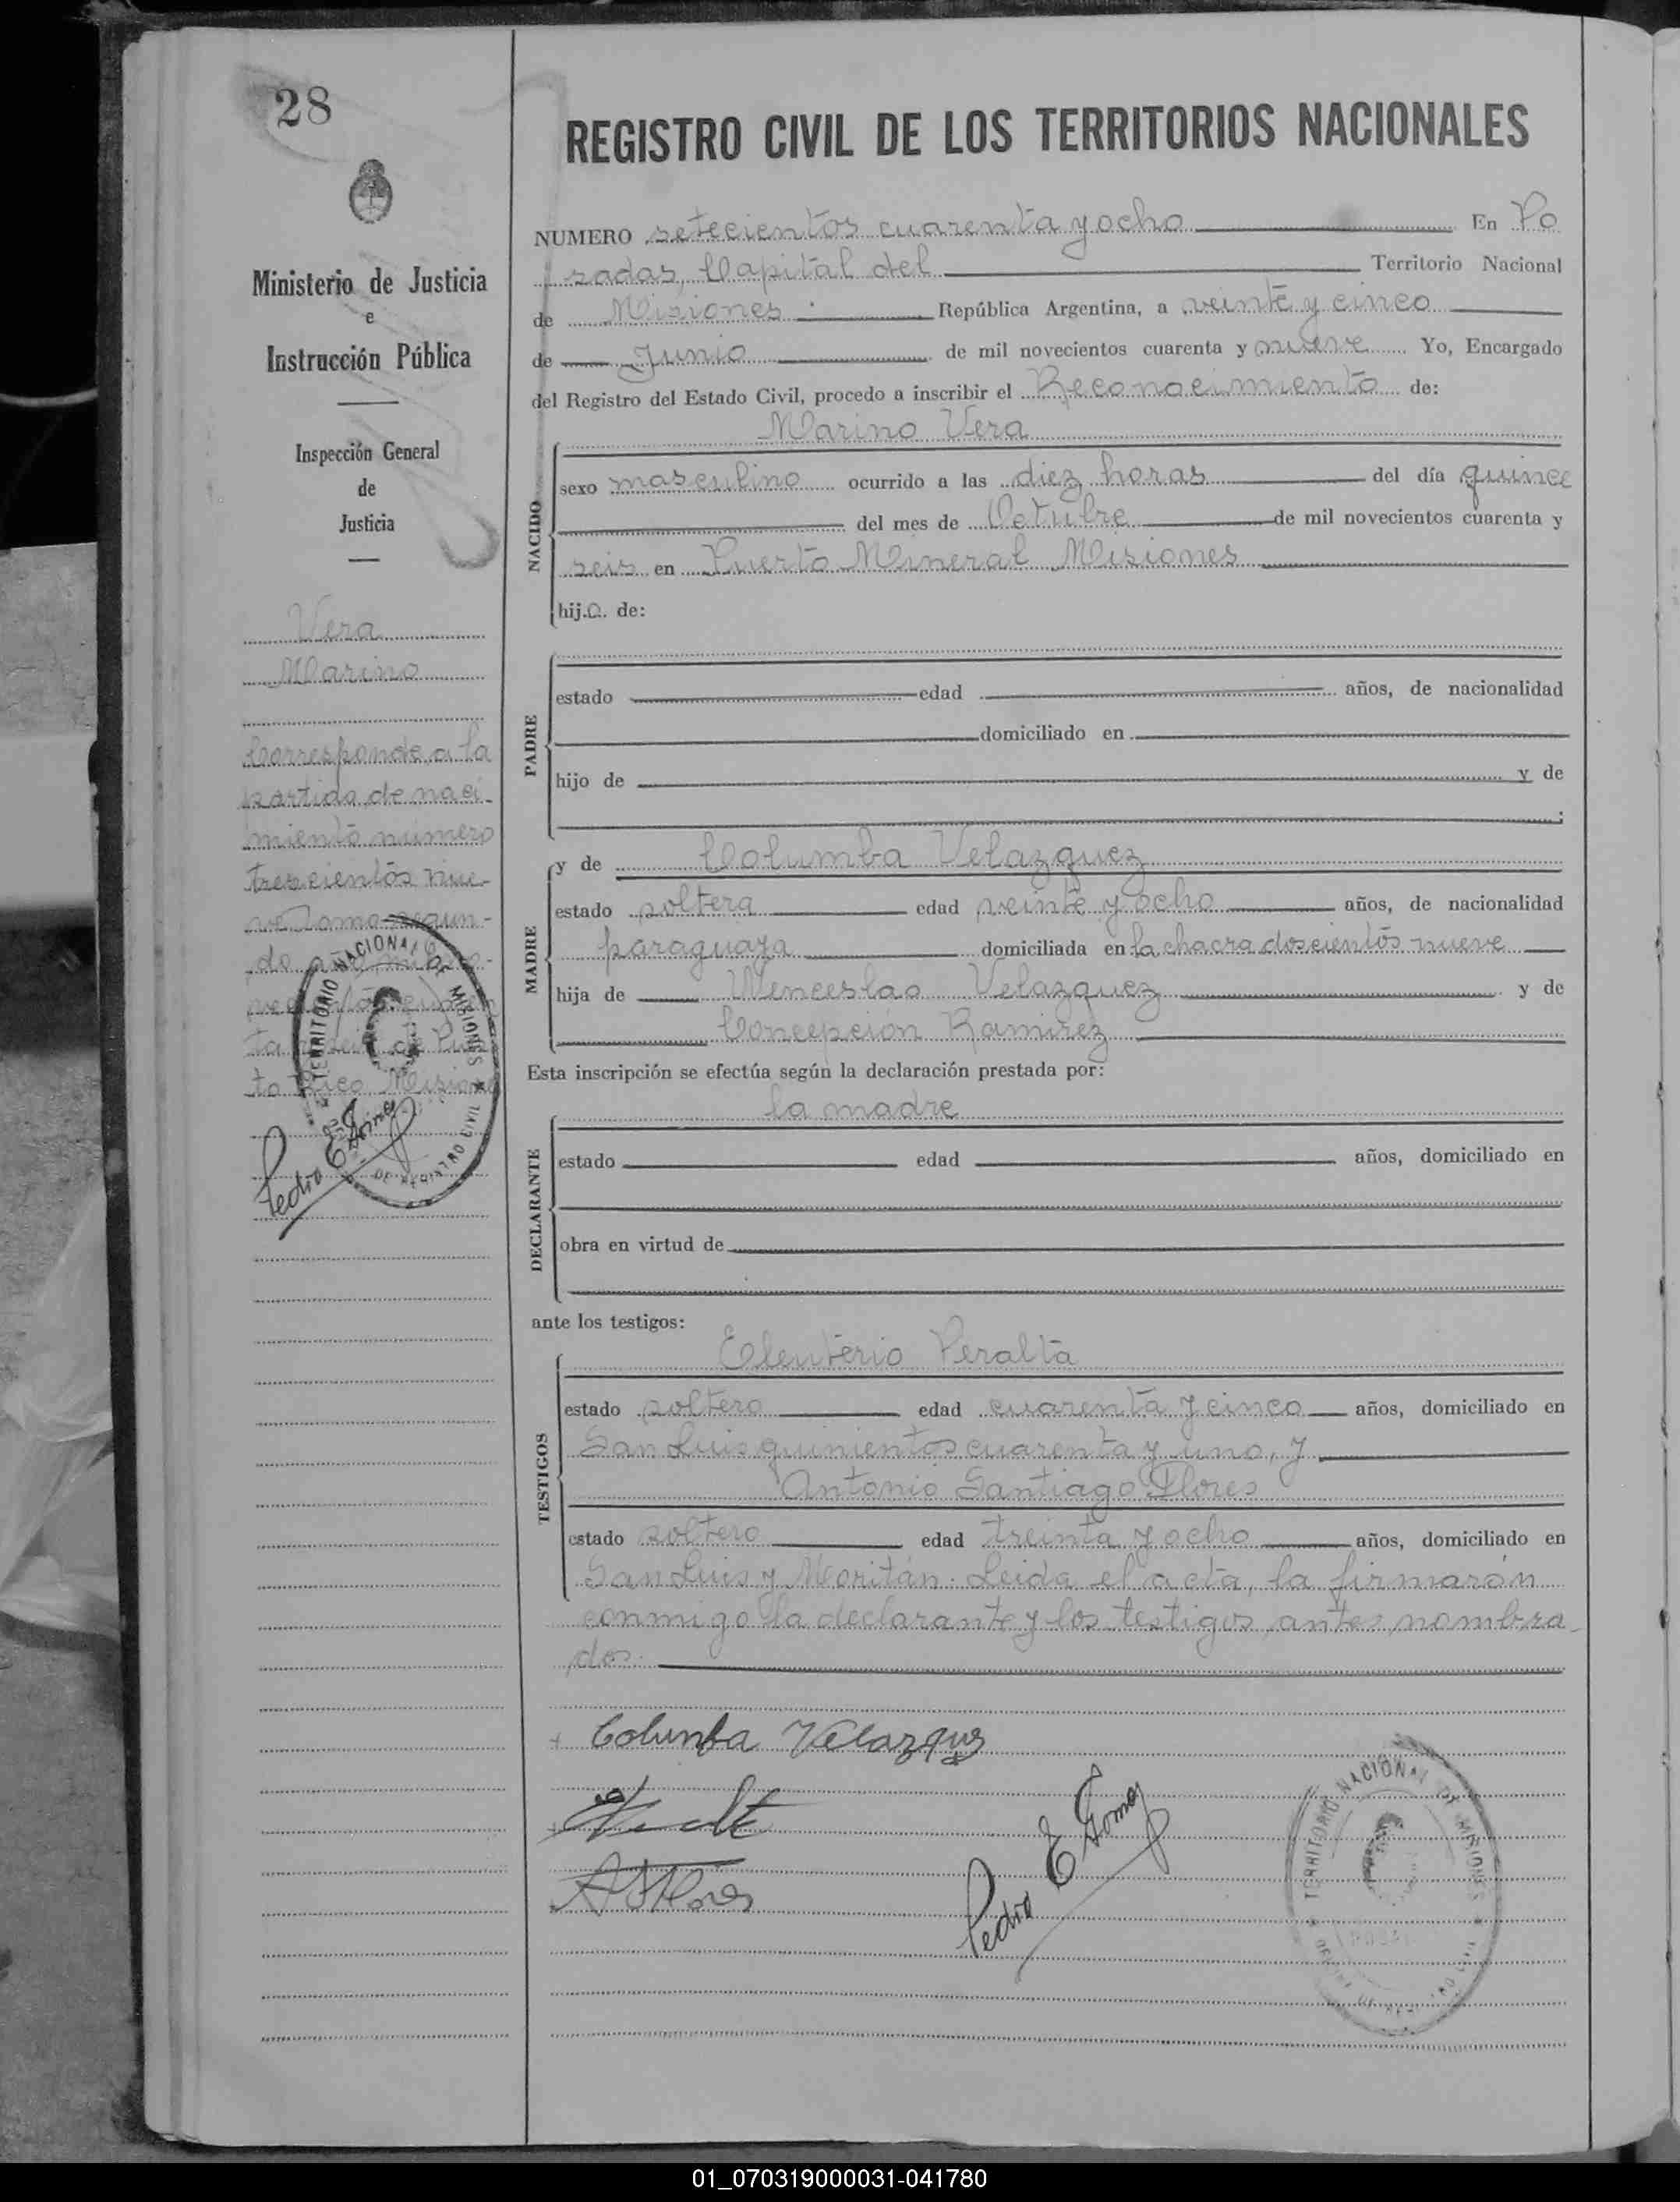 28
Ministerio de Justicia
e
Instrucción Pública
Inspección General
de
Justicia
Vera
Marino
Corresponde a la
partida de naci-
miento número
trescientos nue-
ve Tomo segun-
do año mil no-
Rico Misiones
Pedro E Gomez
TERRITORIO NACIONAL DE MISIONES
DE REGISTRO CIVIL
REGISTRO CIVIL DE LOS TERRITORIOS NACIONALES
NUMERO setecientos cuarenta y ocho En Po
sadas, Capital del Territorio Nacional
de Misiones República Argentina, a veinte y cinco
de Junio de mil novecientos cuarenta y nueve Yo, Encargado
del Registro del Estado Civil, procedo a inscribir el Reconocimiento de:
NACIDO
Marino Vera
sexo masculino ocurrido a las diez horas del día quince
del mes de Octubre de mil novecientos cuarenta y
seis en Puerto Mineral Misiones
hijo de:
PADRE
estado edad años, de nacionalidad
domiciliado en
hijo de y de
;
MADRE
y de Columba Velazquez
estado soltera edad veinte y ocho años, de nacionalidad
paraguaya domiciliada en la chacra doscientos nueve
hija de Wenceslao Velazquez y de
Concepción Ramirez
Esta inscripción se efectúa según la declaración prestada por:
DECLARANTE
la madre
estado edad años, domiciliado en
obra en virtud de
ante los testigos:
TESTIGOS
Eleuterio Peralta
estado soltero edad cuarenta y cinco años, domiciliado en
San Luis quinientos cuarenta y uno, y
Antonio Santiago Flores
estado soltero edad treinta y ocho años, domiciliado en
San Luis y Moritán. Leida el acta, la firmarón
conmigo la declarante y los testigos antes nombra
dos.
Columba Velazquz
A S Flores
Pedro E Gomez
TERRITORIO NACIONAL DE MISIONES
01_070319000031-041780